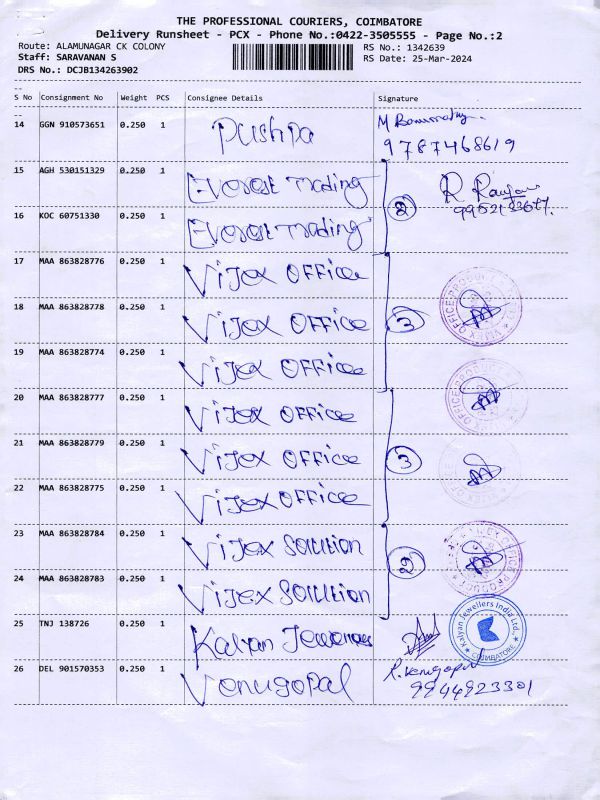 THE PROFESSIONAL COURIERS, COIMBATORE
Delivery Runsheet - PCX - Phone No.:0422-3505555 - Page No.:2
Route: ALAMUNAGAR CK COLONY RS No.: 1342639
Staff: SARAVANAN S RS Date: 25-Mar-2024
DRS No.: DCJB134263902
S No Consignment No Weight PCS Consignee Details Signature
14 GGN 910573651 0.250 1 Pushpa M
9787468619
15 AGH 530151329 0.250 1 Everest Trading R
2
16 KOC 60751330 0.250 1 Everest Trading
17 MAA 863828776 0.250 1 Vijex Office
18 MAA 863828778 0.250 1 Vijex Office 3
19 MAA 863828774 0.250 1 Vijex Office
20 MAA 863828777 0.250 1 Vijex Office
21 MAA 863828779 0.250 1 Vijex Office 3
22 MAA 863828775 0.250 1 Vijex Office
23 MAA 863828784 0.250 1 Vijex Solution
2
24 MAA 863828783 0.250 1 Vijex Solution
25 TNJ 138726 0.250 1 Kalyan Jewellers Kalyan Jewellers India Ltd., COIMBATORE
26 DEL 901570353 0.250 1 Venugopal R. Venugopal
9944923301